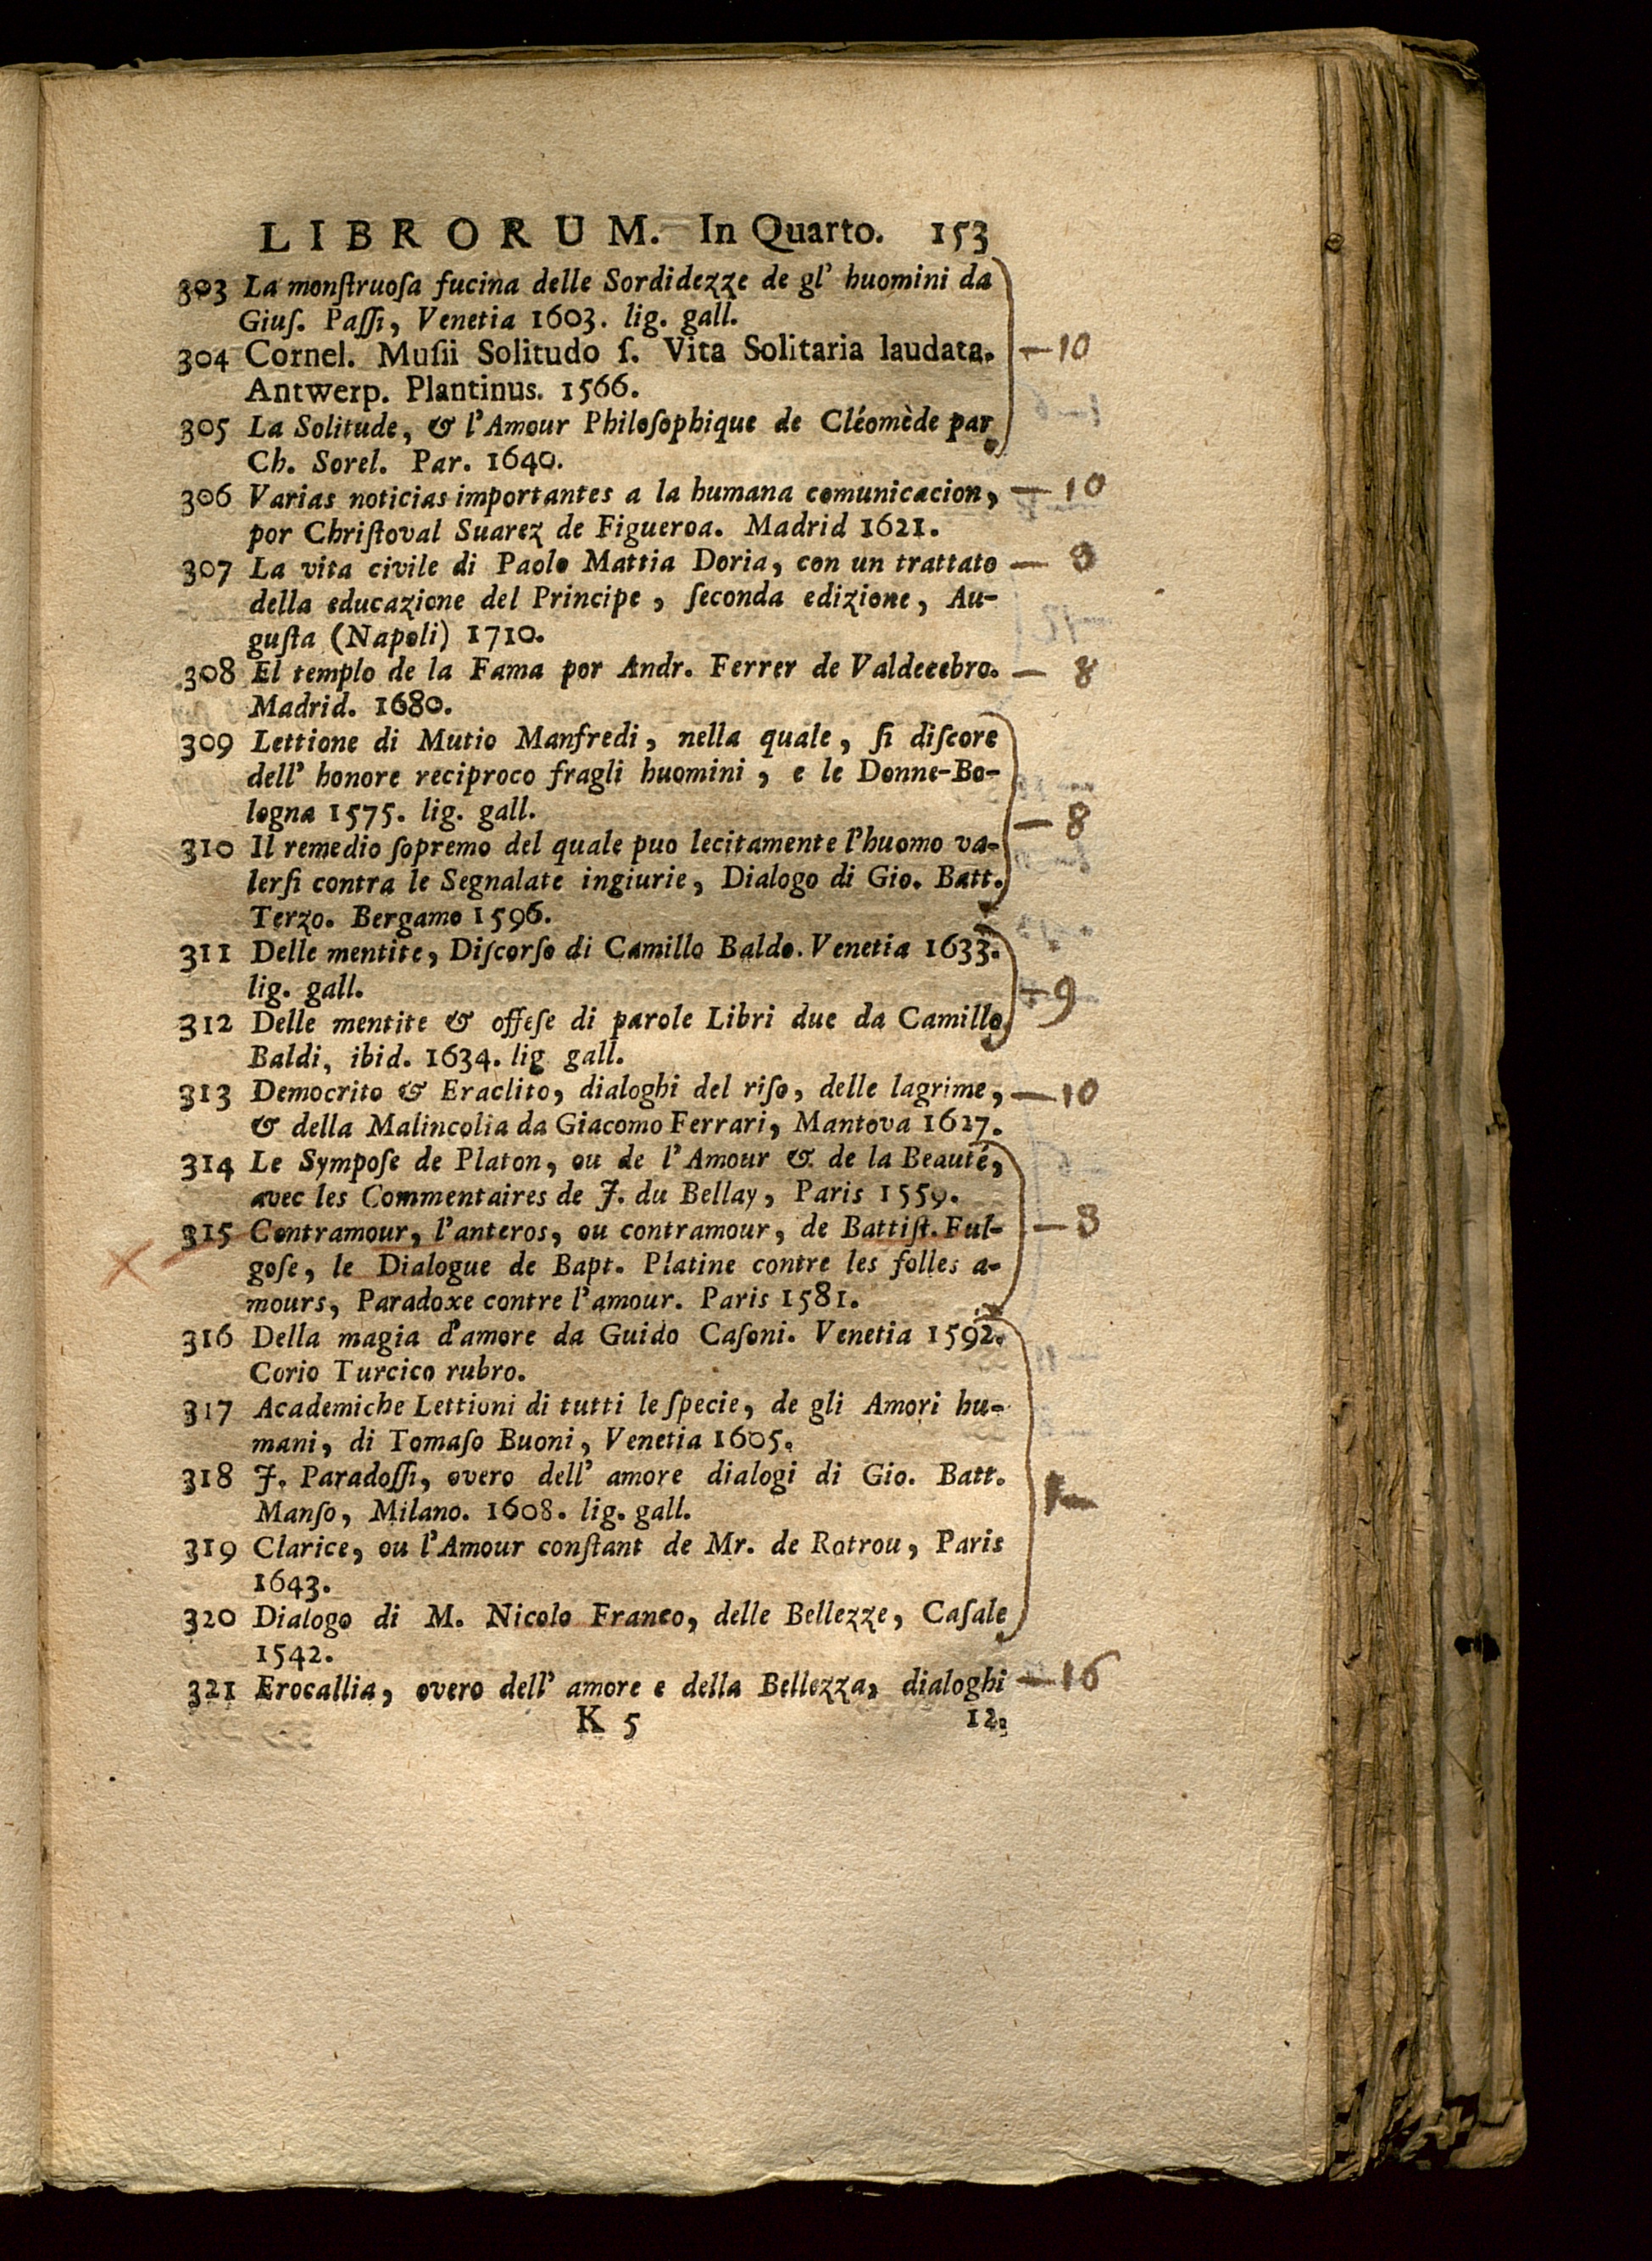 LIBRORUM. In Quarto. 153
303 La monſtruoſa fucina delle Sordidezze de gl' huomini da
Giuſ. Paſſi, Venetia 1603. lig. gall.
304 Cornel. Muſii Solitudo ſ. Vita Solitaria laudata. —10
Antwerp. Plantinus. 1566.
305 La Solitude, & l'Amour Philoſophique de Cléomède par
Ch. Sorel. Par. 1640.
306 Varias noticias importantes a la humana comunicacion, —10
por Chriſtoval Suarez de Figueroa. Madrid 1621.
307 La vita civile di Paolo Mattia Doria, con un trattato —8
della educazione del Principe, ſeconda edizione, Au-
guſta (Napoli) 1710.
308 El templo de la Fama por Andr. Ferrer de Valdecebro. —8
Madrid. 1680.
309 Lettione di Mutio Manfredi, nella quale, ſi diſcore
dell' honore reciproco fragli huomini, e le Donne-Bo-
logna 1575. lig. gall. —8
310 Il remedio ſopremo del quale puo lecitamente l'huomo va-
lerſi contra le Segnalate ingiurie, Dialogo di Gio. Batt.
Terzo. Bergamo 1596.
311 Delle mentite, Diſcorſo di Camillo Baldo. Venetia 1633.
lig. gall. —9
312 Delle mentite & offeſe di parole Libri due da Camillo
Baldi, ibid. 1634. lig gall.
313 Democrito & Eraclito, dialoghi del riſo, delle lagrime, —10
& della Malincolia da Giacomo Ferrari, Mantova 1627.
314 Le Sympoſe de Platon, ou de l'Amour & de la Beauté,
avec les Commentaires de J. du Bellay, Paris 1559.
315 Contramour, l'anteros, ou contramour, de Battiſt. Ful- —8
goſe, le Dialogue de Bapt. Platine contre les folles a-
mours, Paradoxe contre l'amour. Paris 1581.
316 Della magia d'amore da Guido Caſoni. Venetia 1592.
Corio Turcico rubro.
317 Academiche Lettioni di tutti le ſpecie, de gli Amori hu-
mani, di Tomaſo Buoni, Venetia 1605.
318 J. Paradoſſi, overo dell' amore dialogi di Gio. Batt.
Manſo, Milano. 1608. lig. gall.
319 Clarice, ou l'Amour conſtant de Mr. de Rotrou, Paris
1643.
320 Dialogo di M. Nicolo Franco, delle Bellezze, Caſale
1542.
321 Erocallia, overo dell' amore e della Bellezza, dialoghi —16
K 5 12.